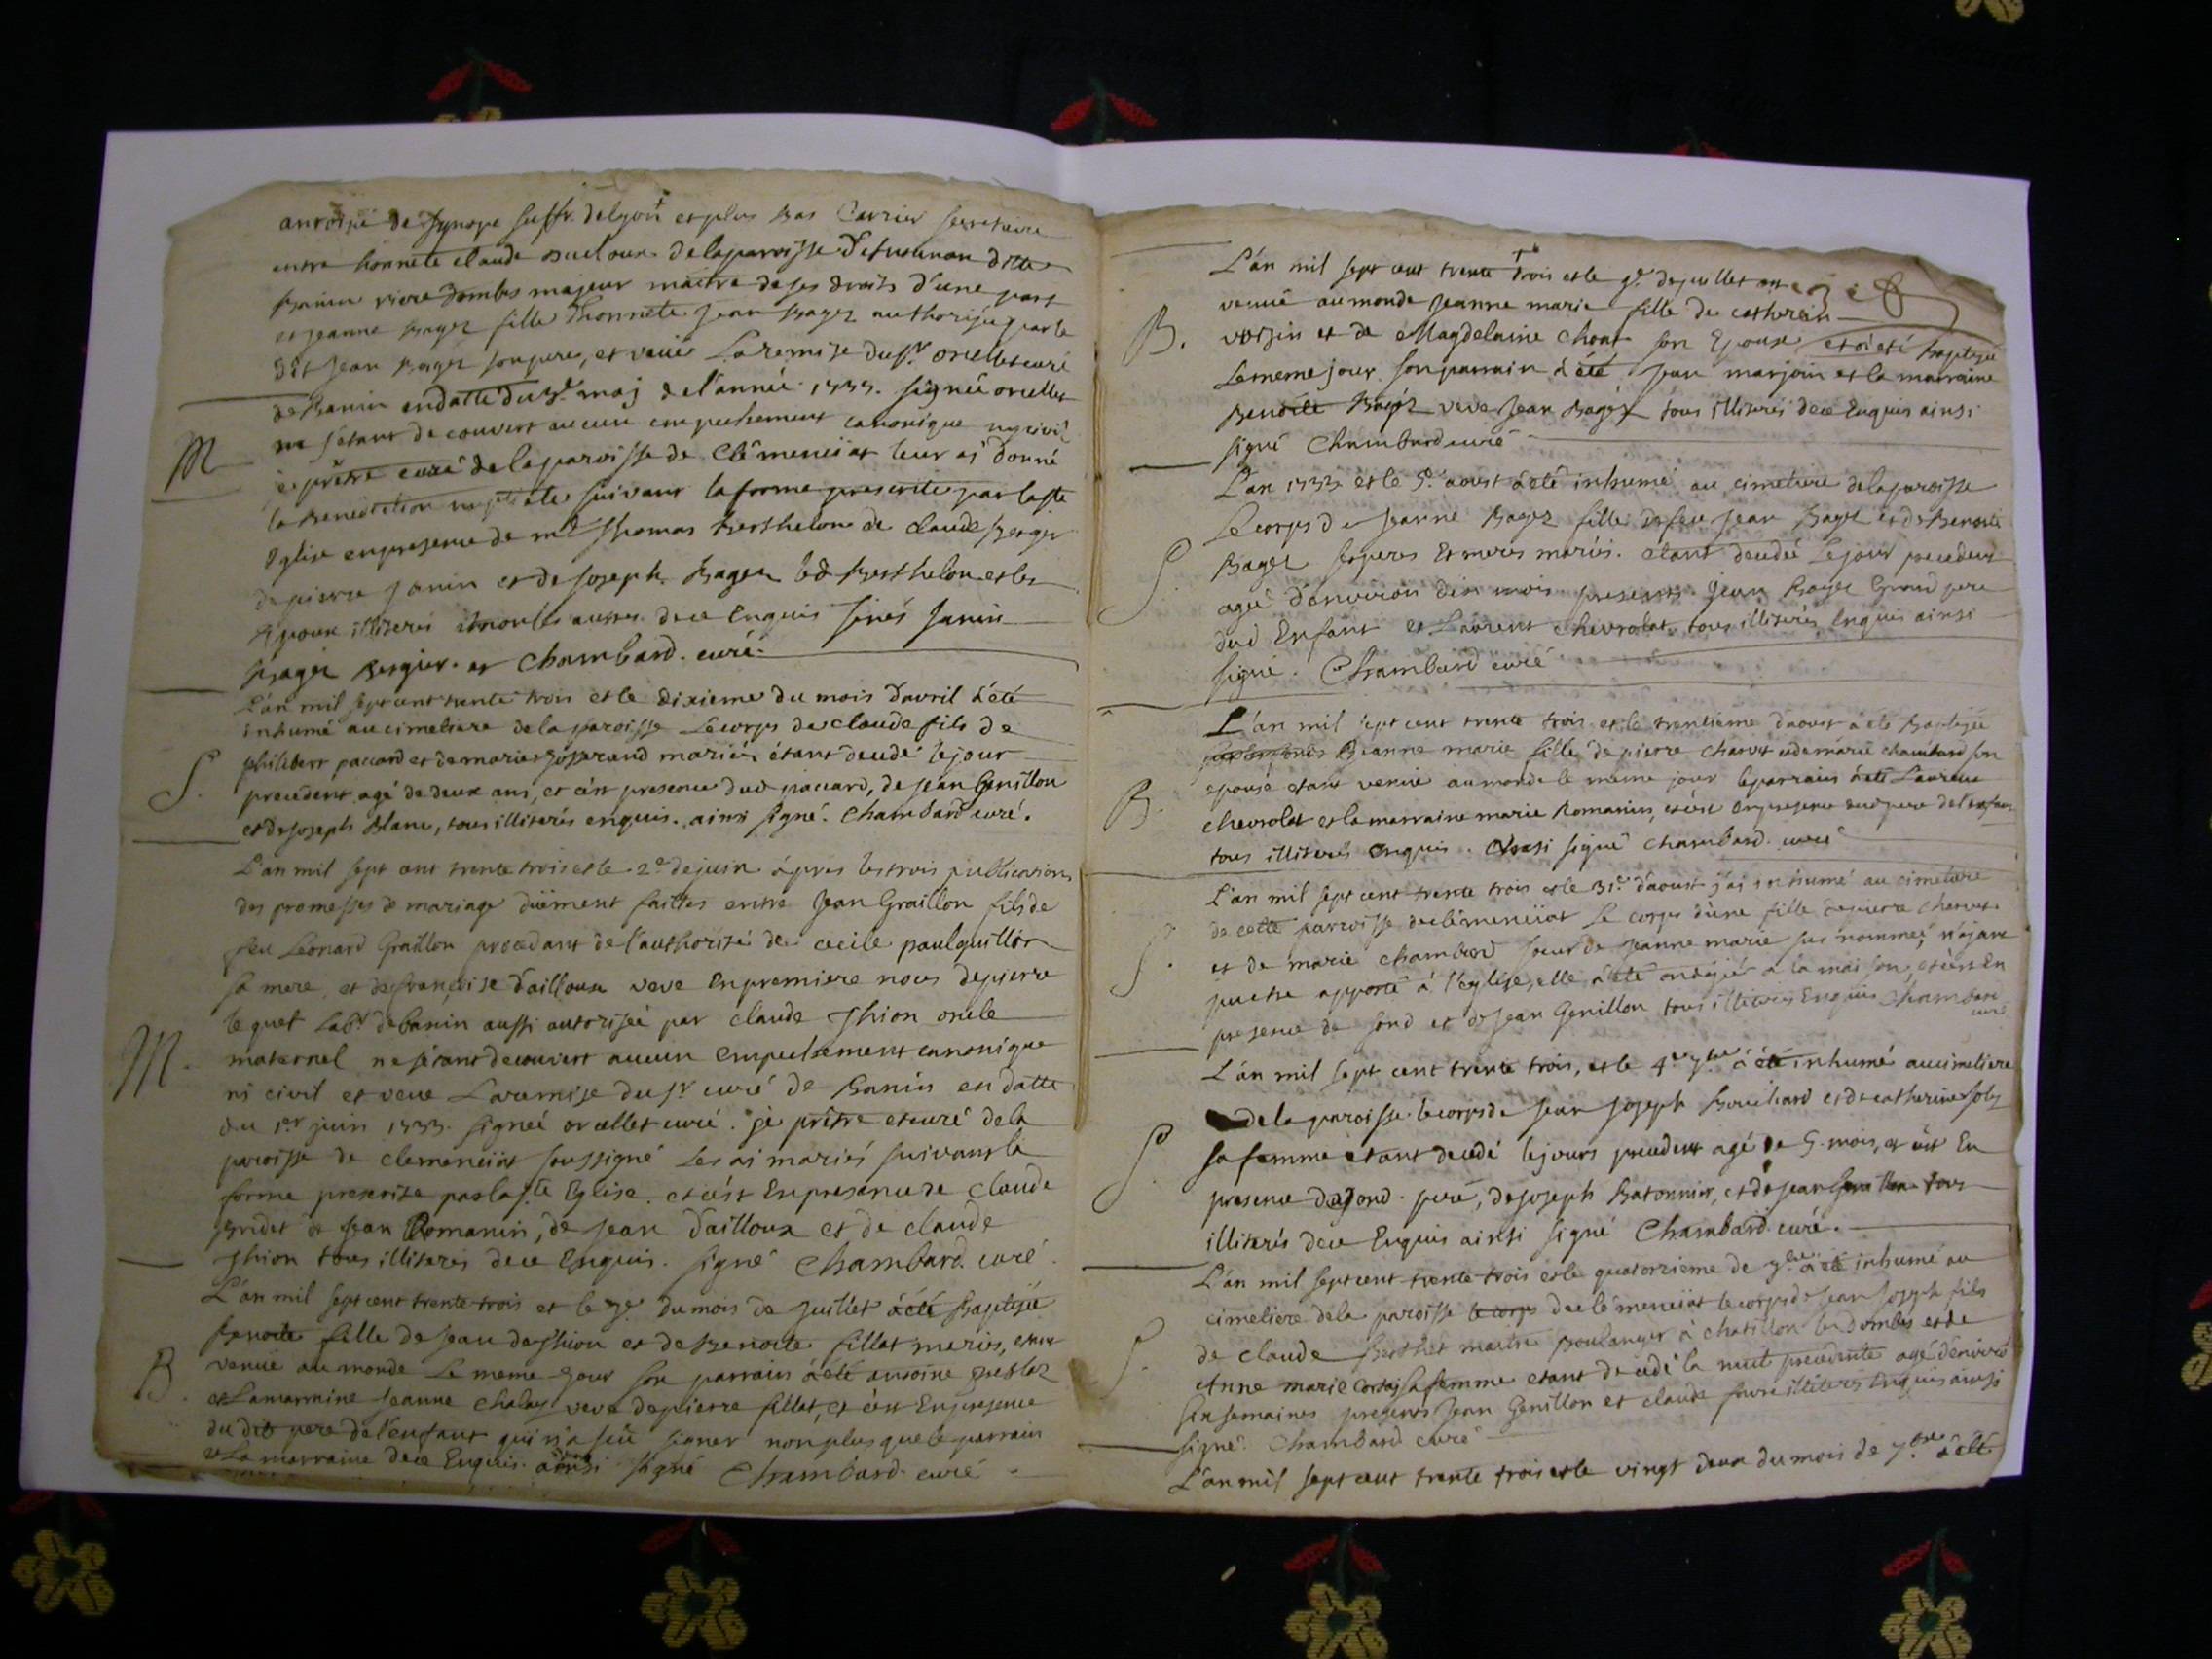 antoine de Synope suffr. delyon et plus bas Carrier secretaire
entre honnete claude delaparoisse
majeur maitre de ses droits d'une part
et jeanne bagez fille d'honnete jean bagez authorisée par le
dit jean bagez son pere, et veüe La remise du sr. orcellet curé
de banin en datte du 3e. maj de l'année 1733. signée orcellet
ne s'etant decouvert aucun empechement canonique ny civil
M
je prêtre curé de la paroisse de Clêmenciat leur ai donné
la benediction nuptiale suivant la forme prescrite par la ste
Eglise en presence de mre Thomas Berthelon de claude bergier
de pierre janin et de joseph bagez led Berthelon et les
Epoux illiterés non les autres de ce Enquis sinés janin
bagez bergier. et Chambard. curé.
L'an mil sept cent trente trois et le dixieme du mois d'avril à été
inhumé au cimetiere de la paroisse Le corps de claude fils de
philibert paccard et de marie josserand mariés étant decedé le jour
S.
precedent agé de deux ans, et c'est presence dud paccard, de jean Genillon
et de joseph Blanc, tous illiterés enquis. ainsi signé. Chambard curé.
L'an mil sept cent trente trois et le 2e de juin après les trois publications
des promesses de mariage düement faittes entre jean Graillon fils de
feu Leonard Graillon procedant de l'authorité de cecile paulquillon
sa mere, et de françoise d'ailloux veve en premiere nous de pierre
lequet Labr. de banin aussi autorisée par claude Thion oncle
M.
maternel ne s'etant decouvert aucun empechement canonique
ni civil et veue La remise du sr curé de Banin en datte
du 1er juin 1733. signée orcellet curé. je prêtre et curé de la
paroisse de clemenciat soussigné les ai mariés suivant la
forme prescrite par la ste Eglise. et c'est En presence de claude
bridet de jean Romanin, de jean d'ailloux et de claude
Thion tous illiterés de ce Enquis. signé Chambard. curé.
L'an mil sept cent trente trois et le 7e. du mois de juillet à été Baptisée
Benoite fille de jean de Thion et de Benoite fillat mariés, etant
B.
venüe au monde le meme jour son parrain à été antoine
et La marraine jeanne chalay veve de pierre fillat, et c'est En presence
du dit pere de l'enfant qui n'a sçu signer non plus que le parrain
et La marraine de ce Enquis. ainsi signé Chambard. curé.
L'an mil sept cent trente trois et le 9e. de juillet est
venüe au monde jeanne marie fille de catherin
B.
voisin et de Magdelaine chont son Epouse, et à été baptisée
Le meme jour son parrain à été jean marjoin et la marraine
Benoite Bagéz veve jean bagéz tous illiterés de ce Enquis ainsi
signé Chambard curé
L'an 1733 et le 5e. aoust à été inhumé au cimetiere de la paroisse
Le corps de jeanne bagez fille de feu jean bagez et de Benoite
S.
Bagez ses peres Et meres mariés. etant decedée Le jour precedent
agée d'environ dix mois presents jean Bagez Grand pere
dud Enfant et Laurent chevrolat tous illiterés Enquis ainsi
signé. Chambard curé
L'an mil sept cent trente trois et le trentieme d'aoust à été Baptisée
jeanne marie fille de pierre charvet et de marie chambard son
B.
epouse etant venüe au monde le meme jour le parrain à été Laurent
chevrolat et la marraine marie Romanin, et c'est En presence dud pere de l'enfant
tous illiterés Enquis. Ainsi signé Chambard. curé
L'an mil sept cent trente trois et le 31e. d'aoust j'ai inhumé au cimetiere
de cette parroisse declêmenciat Le corps d'une fille de pierre charvet
S.
et de marie chambard soeur de jeanne marie sus nommée, n'ayant
puetre apporté à l'eglise, elle à été ondoyée a la maison, et c'est En
presence de fond et de jean Genillon tous illiterés Enquis Chambard
curé
L'an mil sept cent trente trois, et le 4e 7bre à été inhumé au cimetiere
de la paroisse le corps de jean joseph Bouchard et de catherine
S.
sa femme etant decedé le jours precedent agé de 5. mois, et c'est En
presence dud fond. peré, de joseph Batonnier, et de jean tous
illiterés de ce Enquis ainsi signé Chambard. curé.
L'an mil sept cent trente trois et le quatorzieme de 7bre à été inhumé au
cimetiere de la paroisse le corps declêmenciat le corps de jean joseph fils
S.
de claude Berthet maitre Boulanger à chatillon les Dombes et de
Anne marie sa femme etant decedé la nuit precedente agé d'environ
six semaines presents jean Genillon et claude favre illiterés Enquis ainsi
signé. Chambard curé
L'an mil sept cent trente trois et le vingt deux du mois de 7bre à été